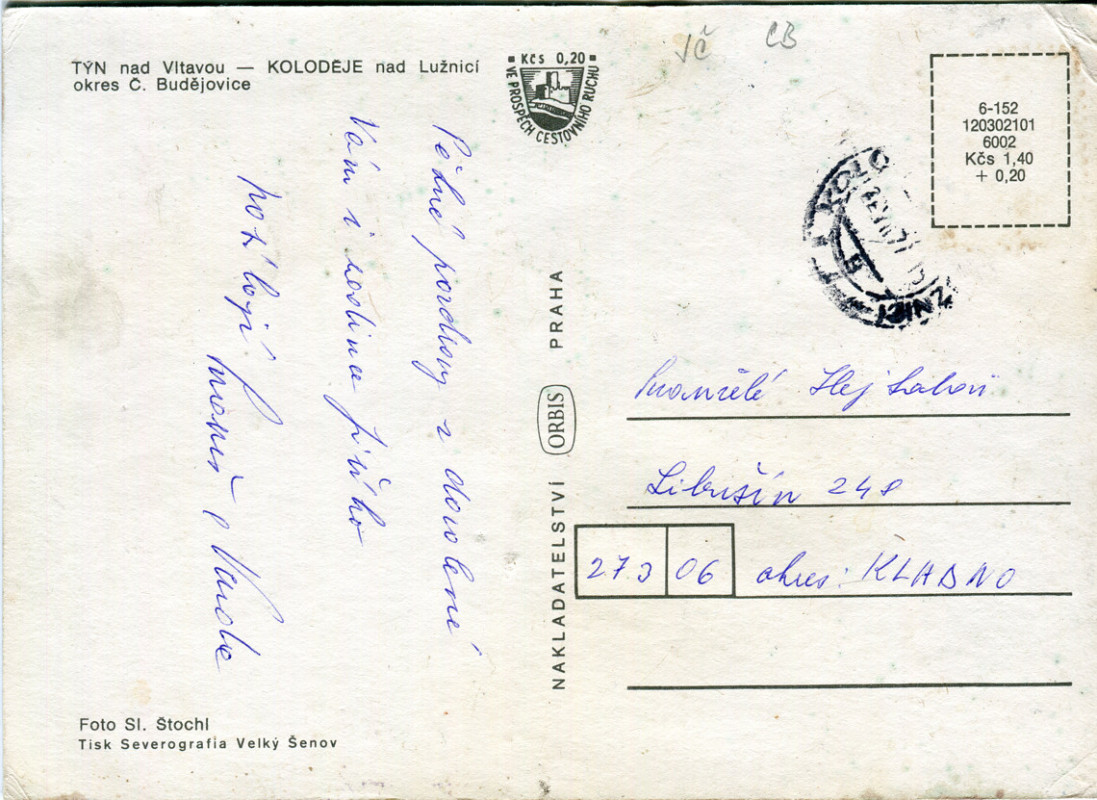 TÝN nad Vltavou — KOLODĚJE nad Lužnicí
okres Č. Budějovice
Kčs 0,20
VE PROSPĚCH CESTOVNÍHO RUCHU
JČ ČB
6-152
120302101
6002
Kčs 1,40
+ 0,20
Pěkné pozdravy z dovolené
Vám i rodince jižího
posílají
Vanda
NAKLADATELSTVÍ ORBIS PRAHA
Manželé
Libušín 248
273 06 okres: KLADNO
Foto Sl. Štochl
Tisk Severografia Velký Šenov